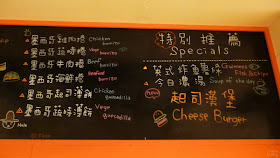 墨西哥雞肉捲 Chicken burrito
墨西哥蔬菜捲 Vege burrito
墨西哥牛肉捲 Beef burrito
墨西哥海鮮捲 Seafood burrito
墨西哥起司薄餅 Chicken Quesadilla
墨西哥蔬菜薄餅 Vege Quesadilla
Male
特別推薦
Specials
英式炸魚薯條 Guinness Fish & chips
今日濃湯 Soup of the day
NEW
起司漢堡
Cheese Burger